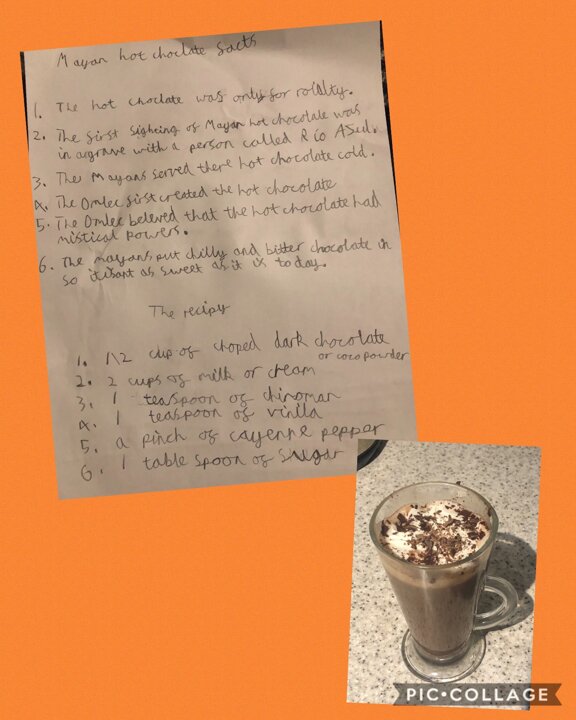 Mayan hot choclate facts
1. The hot choclate was only for roility.
2. The first sighting of Mayan hot chocolate was
in agrave with a person called Río ASul.
3. The Mayans served there hot chocolate cold.
4. The Omlec first created the hot chocolate
5. The Omlec beleved that the hot chocolate had
mistical powers.
6. The mayans put chilly and bitter chocolate in
so it isant as sweet as it is today.
The recipy
1. 1\2 cup of choped dark chocolate
or coco powder
2. 2 cups of milk or cream
3. 1 teaspoon of chinoman
4. 1 teaspoon of vinilla
5. a pinch of cayenne pepper
6. 1 table spoon of sugar
PIC•COLLAGE